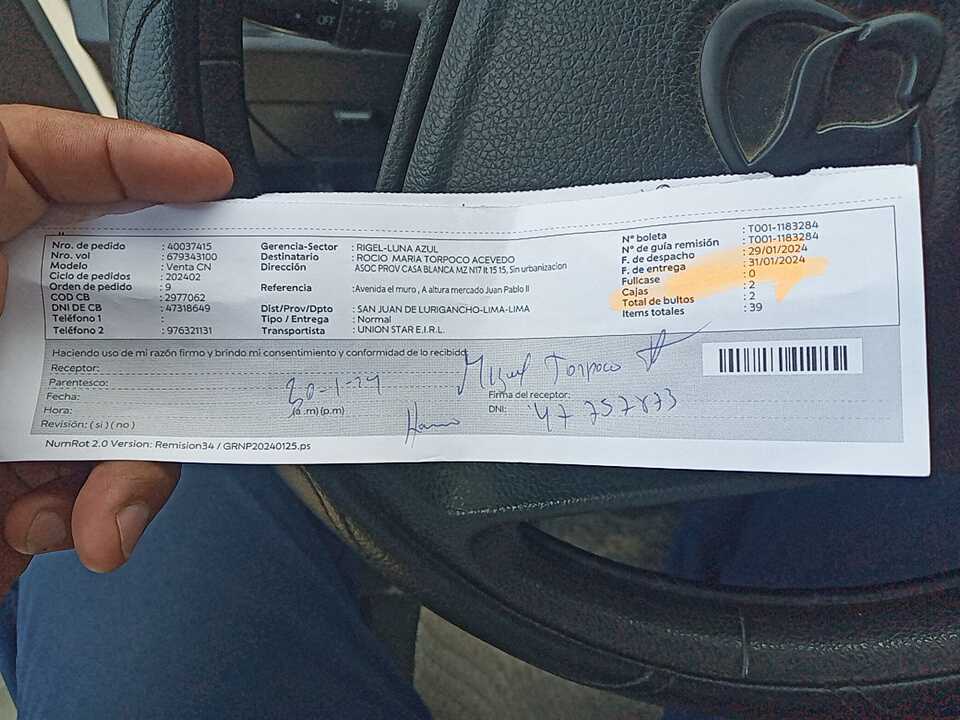 OFF
OFF
Nro. de pedido : 40037415
Nro. vol : 679343100
Modelo : Venta CN
Ciclo de pedidos : 202402
Orden de pedido : 9
COD CB : 2977062
DNI DE CB : 47318649
Teléfono 1 :
Teléfono 2 : 976321131
Gerencia-Sector : RIGEL-LUNA AZUL
Destinatario : ROCIO MARIA TORPOCO ACEVEDO
Dirección ASOC PROV CASA BLANCA MZ N17 lt 15 15, Sin urbanizacion
Referencia : Avenida el muro , A altura mercado Juan Pablo II
Dist/Prov/Dpto : SAN JUAN DE LURIGANCHO-LIMA-LIMA
Tipo / Entrega : Normal
Transportista : UNION STAR E.I.R.L.
N° boleta : T001-1183284
N° de guía remisión : T001-1183284
F. de despacho : 29/01/2024
F. de entrega : 31/01/2024
Fullcase : 0
Cajas : 2
Total de bultos : 2
Items totales : 39
Haciendo uso de mi razón firmo y brindo mi consentimiento y conformidad de lo recibido
Receptor:
Parentesco:
Fecha: 30-1-24
Hora: (a.m)(p.m)
Revisión: ( si ) ( no )
Miguel Torpoco
Firma del receptor:
DNI: 47 757873
NumRot 2.0 Version: Remision34 / GRNP20240125.ps